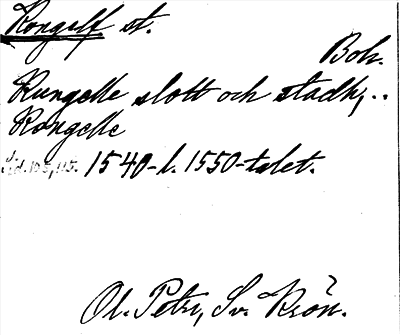 Kongelf st.
Boh.
Kungelle slott och stadh, ..
Kongelle
Sid. 105, 115. 1540- l. 1550-talet.
Ol. Petri, Sv. Krön.